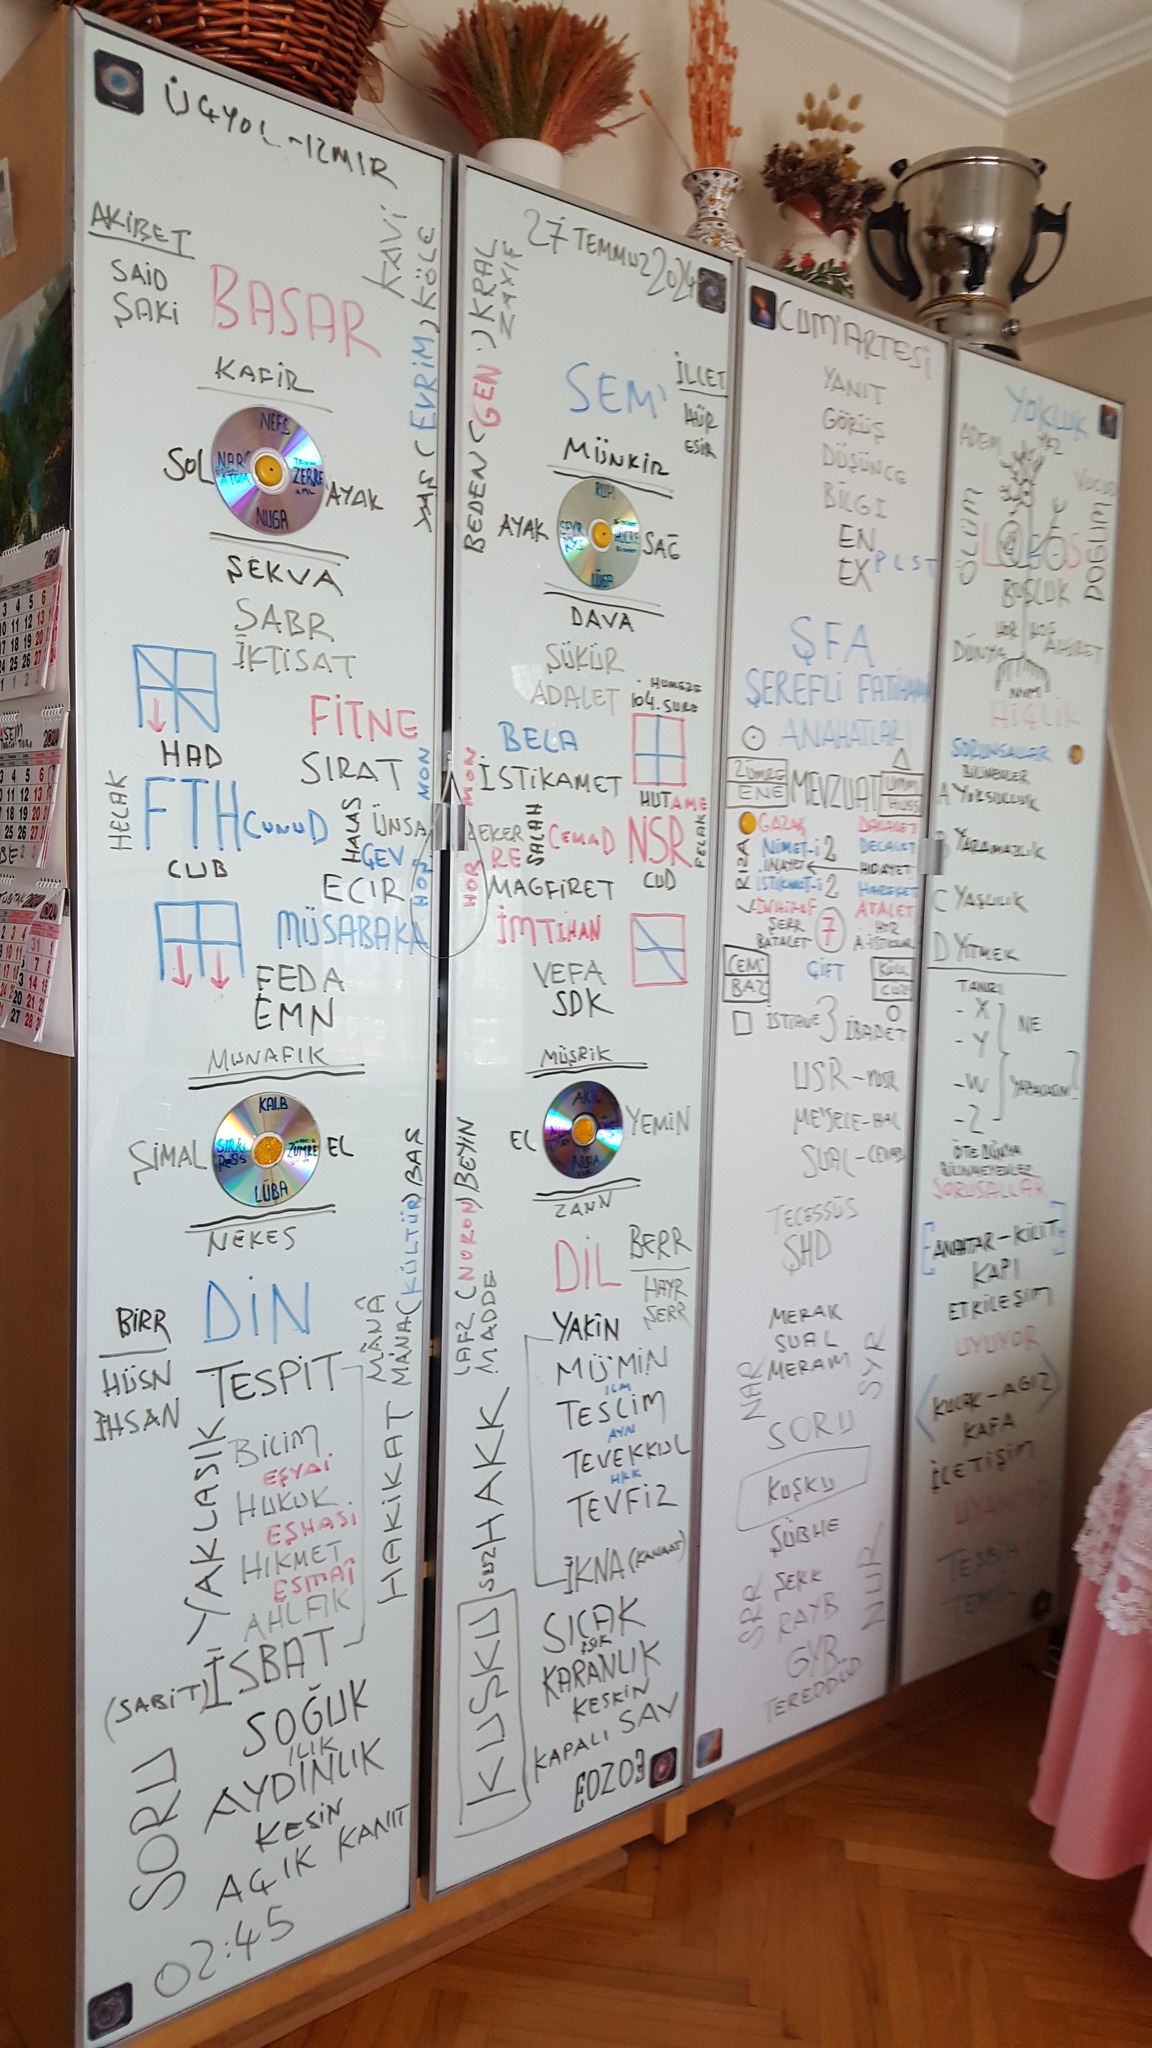 ÜÇYOL-IZMIR
AKİBET
SAİD
ŞAKİ
BASAR
KAVİ
KÖLE
YAŞ (EVRİM)
KAFİR
SOL
NEFS
NAR
ATOM
ZERRE
NUGA
AYAK
ŞEKVA
SABR
İKTİSAT
FİTNE
HAD
SIRAT
HELAK
FTH
CUNUD
HALAS
ÜNSA
ÇEV
CUB
ECIR
MÜSABAKA
FEDA
EMN
MUNAFIK
ŞİMAL
KALB
ZÜMRE
LÜBA
EL
NEKES
DİN
BİRR
HÜSN
İHSAN
TESPİT
MÂNÂ
MÂNA (KÜLTÜR) BAŞ
YAKLAŞIK
BİLİM
EŞYAİ
HUKUK
EŞHASİ
HİKMET
ESMAİ
AHLAK
HAKİKAT
İSBAT
(SABİT)
SOĞUK
ILIK
AYDINLIK
KESİN
AÇIK KANIT
SORU
02:45
27 TEMMUZ 2024
BEDEN (GEN) KRAL
ZAYIF
SEM'
İLLET
HÜR
ESİR
MÜNKİR
AYAK
RUH
HÜCRE
SAĞ
DAVA
ŞÜKÜR
ADALET
HÜMEZE
104. SURE
BELA
İSTİKAMET
HUTAME
MON
MON
EKER
RE
SALAH
CEMAD
NSR
FELAK
MAGFİRET
CUD
HOR
İMTİHAN
VEFA
SDK
MÜŞRİK
EL
AKL
YEMİN
ZANN
DİL
BERR
HAYR
ŞERR
LAFZ (NORON) BEYİN
MADDE
YAKİN
MÜ'MİN
İLM
TESLİM
AYN
TEVEKKÜL
HKK
TEVFİZ
İKNA (KANAAT)
SUZ HAKK
KUŞKU
SICAK
IŞIK
KARANLIK
KESKİN
KAPALI SAV
CUM'ARTESİ
YANIT
GÖRÜŞ
DÜŞÜNCE
BİLGİ
EN
EX PLST
ŞFA
ŞEREFLİ FATİHANIN
ANAHATLARI
ZÜMRE
ENE
MEVZUAT
GAZAB
DALALET
NİMET-İ 2
DELALET
İNAYET
HİDAYET
RIZA
İSTİKMET-İ 2
HAREKET
İNHİRAF
ATALET
ŞERR
BATALET
7
CEM'
BAZ
ÇİFT
KÜLL
CÜZ
İSTİANE 3 İBADET
USR-YUSR
MES'ELE-HAL
SUAL-CEVAB
TECESSÜS
ŞHD
MERAK
SUAL
MERAM
NAR
SYR
SORU
KUŞKU
ŞÜBHE
ŞEKK
RAYB
GYB
TEREDDÜD
NUR
YOKLUK
ADEM
VÜCUD
ÖLÜM
DOĞUM
BOŞLUK
DÜNYA
AHİRET
HİÇLİK
SORUNSALLAR
BİLİNENLER
A YOKSULLUK
B YARAMAZLIK
C YAŞLILIK
D YİTMEK
TANRI
- X
- Y
- W
- Z
NE
YAPACAĞIM?
ÖTE DÜNYA
BİLİNMEYENLER
SORUSALLAR
ANAHTAR-KİLİT
KAPI
ETKİLEŞİM
UYUYOR
KULAK-AĞIZ
KAFA
İLETİŞİM